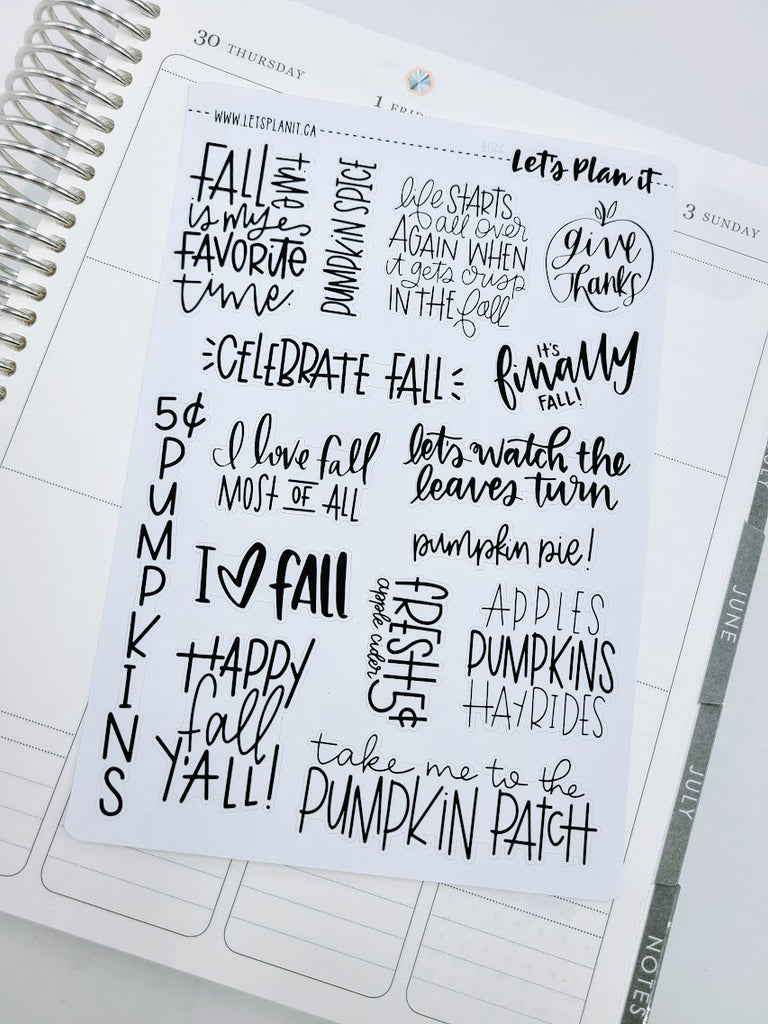 30 THURSDAY
1 FRID
3 SUNDAY
WWW.LETSPLANIT.CA
Let's Plan it
FALL
time
is mye
FAVORITE
time.
PUMPKIN SPICE
life STARTS
all over
AGAIN WHEN
it gets crisp
IN THE fall
give
Thanks
CELEBRATE FALL
IT'S
finally
FALL!
5¢
PUMPKINS
I love fall
MOST OF ALL
let's watch the
leaves turn
pumpkin pie!
I ♡ FALL
FRESH 5¢
apple cider
APPLES
PUMPKINS
HAYRIDES
HAPPY
fall
Y'ALL!
take me to the
PUMPKIN PATCH
JUNE
JULY
NOTES